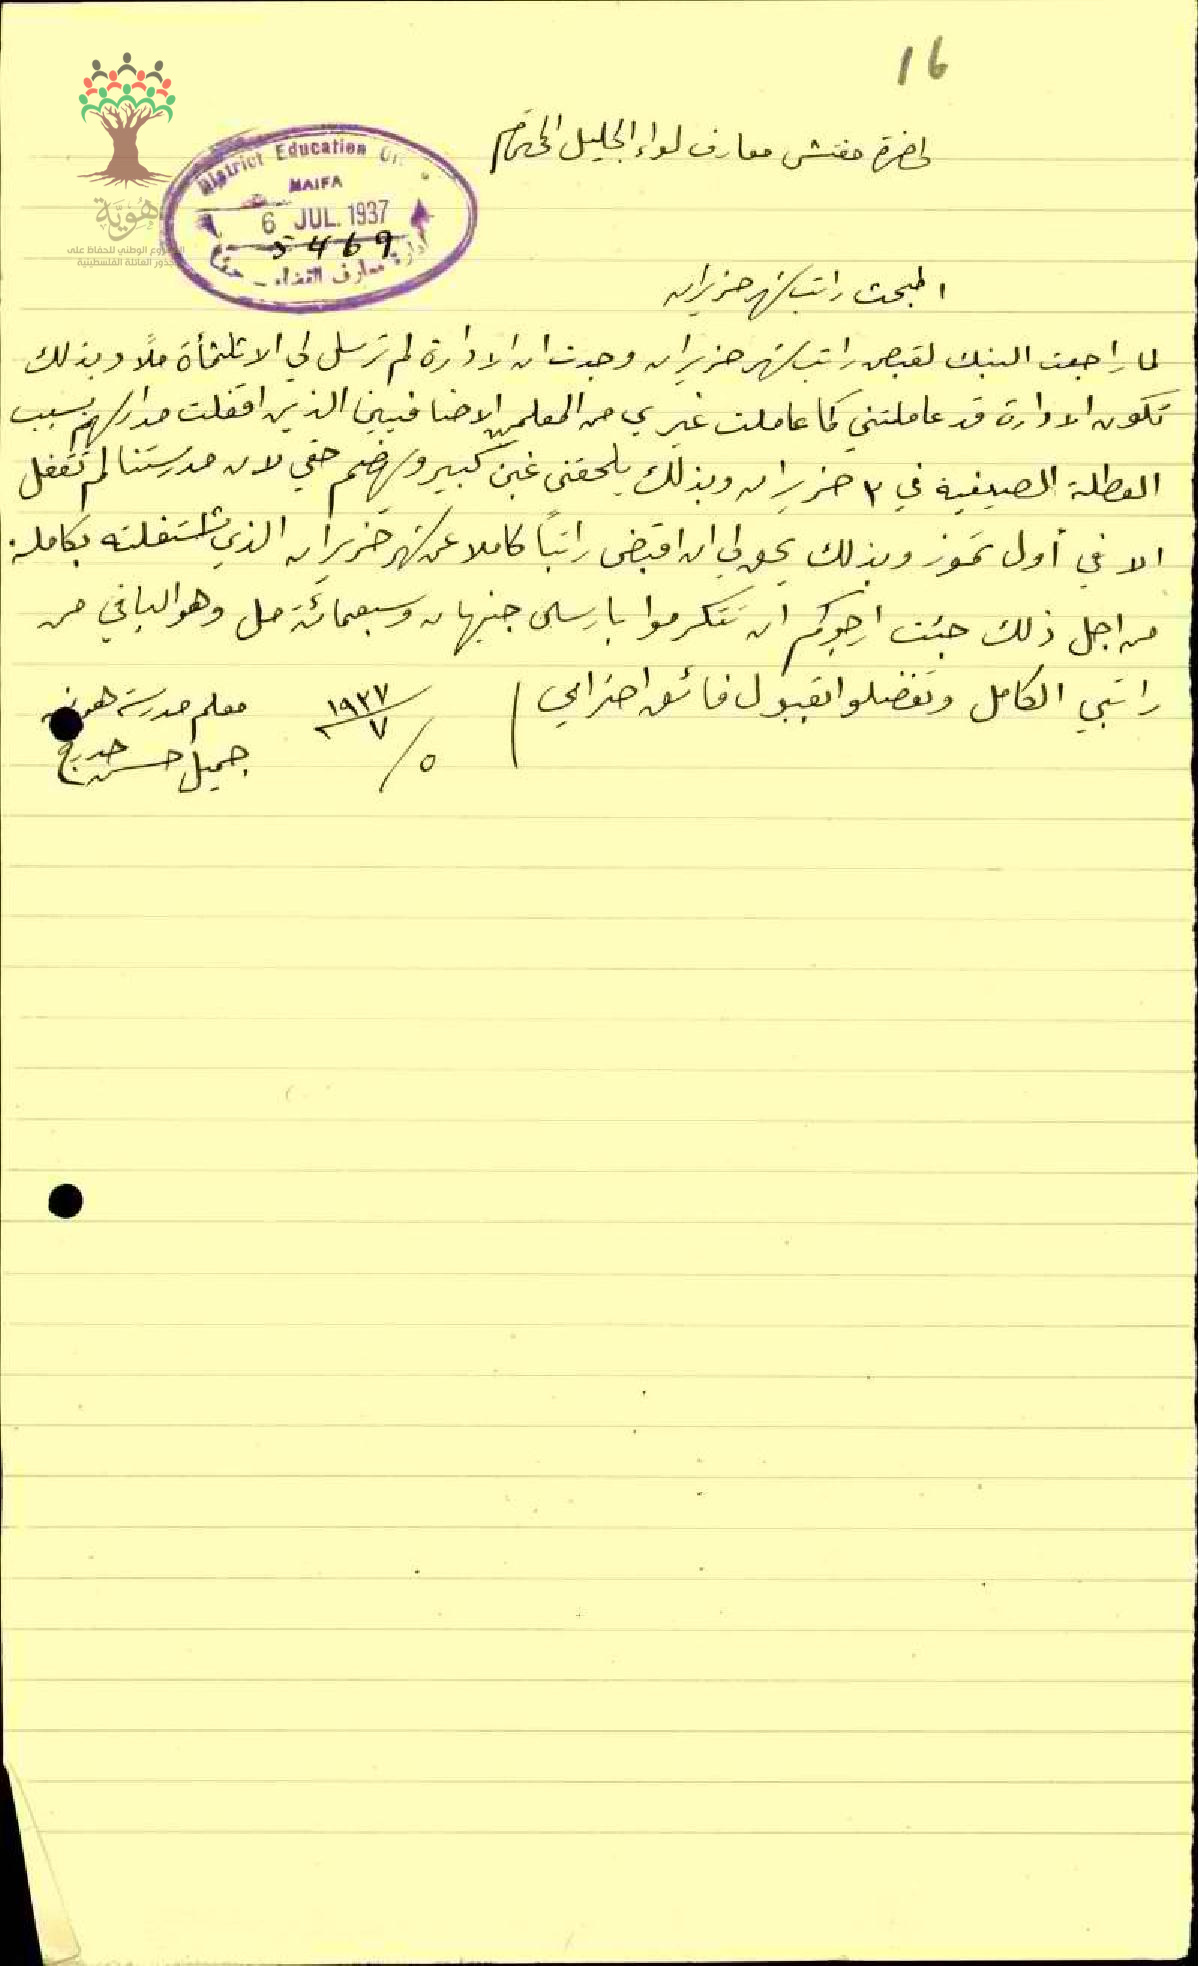 16
لحضرة مفتش معارف لواء الجليل المحترم
District Education
HAIFA
6 JUL. 1937
5469
ادارة معارف القضاء حيفا
هُوِيَّة
المشروع الوطني للحفاظ على
جذور العائلة الفلسطينية
المبحث راتب شهر حزيران
لما راجعت البنك لقبض راتب شهر حزيران وجدت ان الادارة لم ترسل لي الا ثلثمأة ملاً وبذلك
تكون الادارة قد عاملتني كما عاملت غيري من المعلمين الاضافيين الذين اقفلت مدارسهم بسبب
العطلة الصيفية في ٣ حزيران وبذلك يلحقني غبن كبير وهضم حقي لان مدرستنا لم تقفل
الا في أول تموز وبذلك يحق لي ان اقبض راتباً كاملا عن شهر حزيران الذي اشتغلته بكامله.
من اجل ذلك جئت ارجوكم ان تتكرموا بارسال جنيهان وسبعمائة مل وهو الباقي من
راتبي الكامل وتفضلوا بقبول فائق احترامي
٥/٧/١٩٣٧
معلم مدرسة هونين
جميل حسن خديج